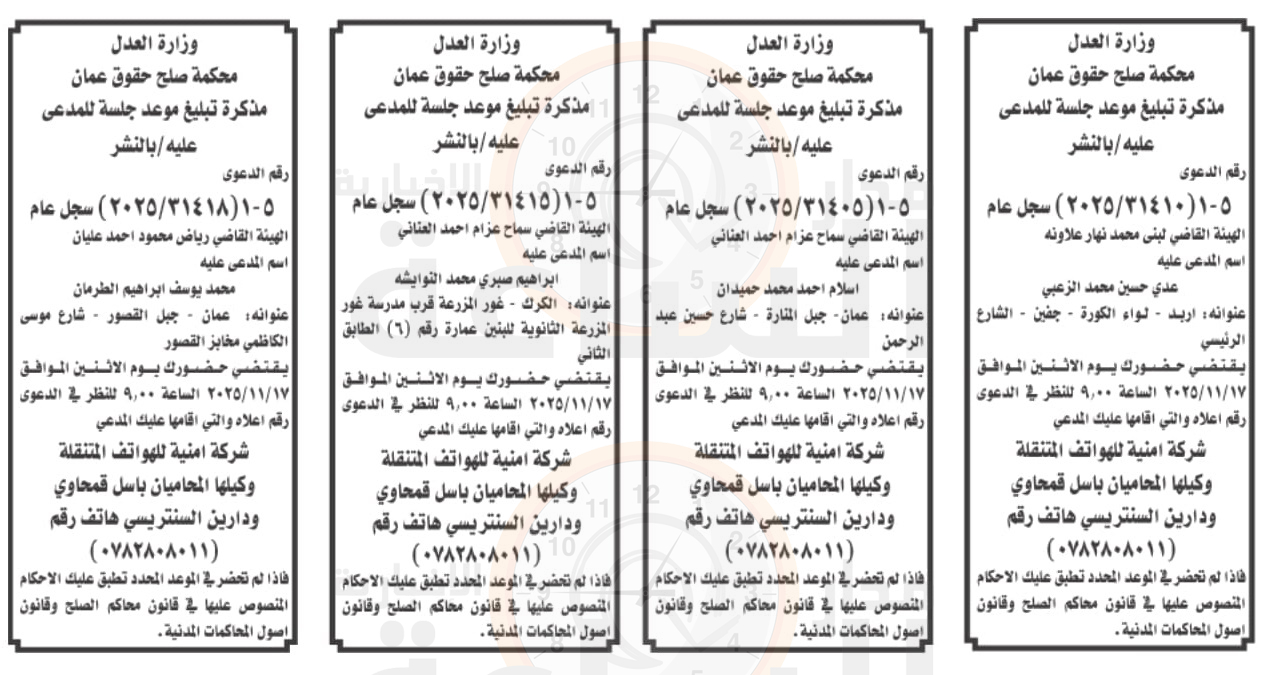 وزارة العدل
محكمة صلح حقوق عمان
مذكرة تبليغ موعد جلسة للمدعى
عليه/بالنشر
رقم الدعوى
٥-١(٢٠٢٥/٣١٤١٠) سجل عام
الهيئة القاضي لبنى محمد نهار علاونه
اسم المدعى عليه
عدي حسين محمد الزعبي
عنوانه: اربد - لواء الكورة - جفين - الشارع
الرئيسي
يقتضي حضورك يوم الاثنين الموافق
٢٠٢٥/١١/١٧ الساعة ٩,٠٠ للنظر في الدعوى
رقم اعلاه والتي اقامها عليك المدعي
شركة امنية للهواتف المتنقلة
وكيلها المحاميان باسل قمحاوي
ودارين السنتريسي هاتف رقم
(٠٧٨٢٨٠٨٠١١)
فاذا لم تحضر في الموعد المحدد تطبق عليك الاحكام
المنصوص عليها في قانون محاكم الصلح وقانون
اصول المحاكمات المدنية.
وزارة العدل
محكمة صلح حقوق عمان
مذكرة تبليغ موعد جلسة للمدعى
عليه/بالنشر
رقم الدعوى
٥-١(٢٠٢٥/٣١٤٠٥) سجل عام
الهيئة القاضي سماح عزام احمد العناني
اسم المدعى عليه
اسلام احمد محمد حميدان
عنوانه: عمان- جبل المنارة - شارع حسين عبد
الرحمن
يقتضي حضورك يوم الاثنين الموافق
٢٠٢٥/١١/١٧ الساعة ٩,٠٠ للنظر في الدعوى
رقم اعلاه والتي اقامها عليك المدعي
شركة امنية للهواتف المتنقلة
وكيلها المحاميان باسل قمحاوي
ودارين السنتريسي هاتف رقم
(٠٧٨٢٨٠٨٠١١)
فاذا لم تحضر في الموعد المحدد تطبق عليك الاحكام
المنصوص عليها في قانون محاكم الصلح وقانون
اصول المحاكمات المدنية.
وزارة العدل
محكمة صلح حقوق عمان
مذكرة تبليغ موعد جلسة للمدعى
عليه/بالنشر
رقم الدعوى
٥-١(٢٠٢٥/٣١٤١٥) سجل عام
الهيئة القاضي سماح عزام احمد العناني
اسم المدعى عليه
ابراهيم صبري محمد النوايشه
عنوانه: الكرك - غور المزرعة قرب مدرسة غور
المزرعة الثانوية للبنين عمارة رقم (٦) الطابق
الثاني
يقتضي حضورك يوم الاثنين الموافق
٢٠٢٥/١١/١٧ الساعة ٩,٠٠ للنظر في الدعوى
رقم اعلاه والتي اقامها عليك المدعي
شركة امنية للهواتف المتنقلة
وكيلها المحاميان باسل قمحاوي
ودارين السنتريسي هاتف رقم
(٠٧٨٢٨٠٨٠١١)
فاذا لم تحضر في الموعد المحدد تطبق عليك الاحكام
المنصوص عليها في قانون محاكم الصلح وقانون
اصول المحاكمات المدنية.
وزارة العدل
محكمة صلح حقوق عمان
مذكرة تبليغ موعد جلسة للمدعى
عليه/بالنشر
رقم الدعوى
٥-١(٢٠٢٥/٣١٤١٨) سجل عام
الهيئة القاضي رياض محمود احمد عليان
اسم المدعى عليه
محمد يوسف ابراهيم الطرمان
عنوانه: عمان - جبل القصور - شارع موسى
الكاظمي مخابز القصور
يقتضي حضورك يوم الاثنين الموافق
٢٠٢٥/١١/١٧ الساعة ٩,٠٠ للنظر في الدعوى
رقم اعلاه والتي اقامها عليك المدعي
شركة امنية للهواتف المتنقلة
وكيلها المحاميان باسل قمحاوي
ودارين السنتريسي هاتف رقم
(٠٧٨٢٨٠٨٠١١)
فاذا لم تحضر في الموعد المحدد تطبق عليك الاحكام
المنصوص عليها في قانون محاكم الصلح وقانون
اصول المحاكمات المدنية.